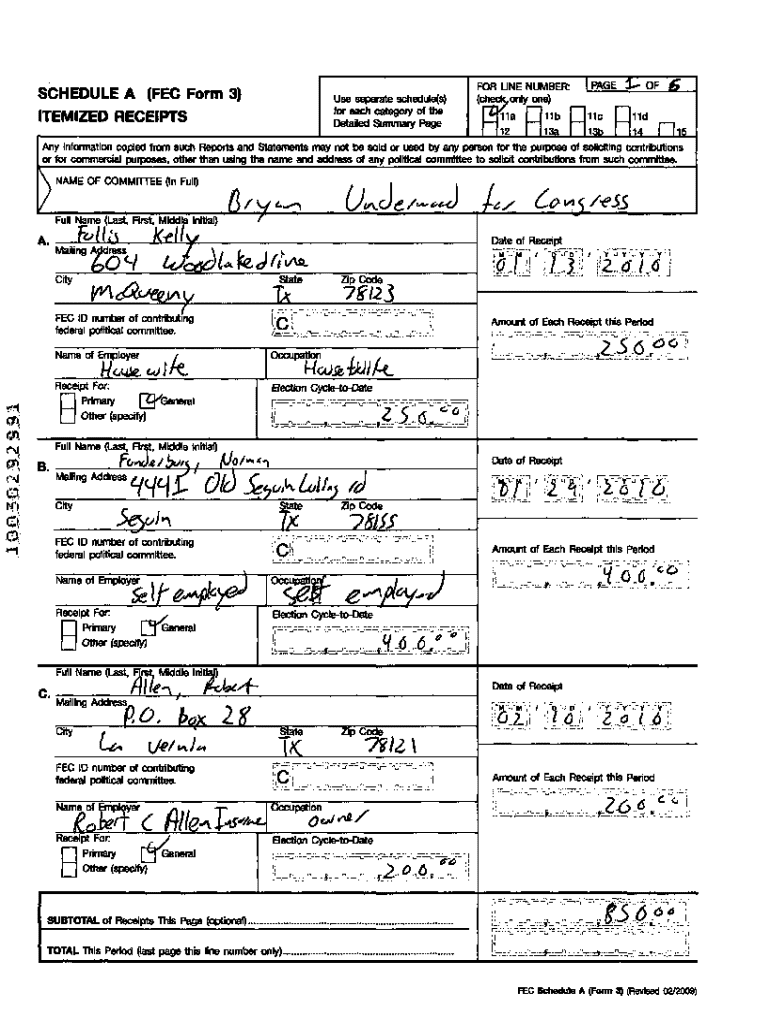 SCHEDULE A (FEC Form 3)
ITEMIZED RECEIPTS
Use separate schedule(s)
for each category of the
Detailed Summary Page
FOR LINE NUMBER: PAGE 1 OF 5
(check only one)
11a 11b 11c 11d
12 13a 13b 14 15
Any information copied from such Reports and Statements may not be sold or used by any person for the purpose of soliciting contributions
or for commercial purposes, other than using the name and address of any political committee to solicit contributions from such committee.
NAME OF COMMITTEE (In Full)
Bryan Underwood for Congress
Full Name (Last, First, Middle Initial)
A. Follis Kelly
Mailing Address
604 Woodlake drive
City State Zip Code
McQueeny Tx 78123
FEC ID number of contributing
federal political committee. C
Name of Employer Occupation
Housewife Housewife
Receipt For: Election Cycle-to-Date
Primary General
Other (specify) 250.00
Date of Receipt
M M / D D / Y Y Y Y
01 13 2010
Amount of Each Receipt this Period
250.00
Full Name (Last, First, Middle Initial)
B. Funderburg, Norman
Mailing Address 4441 Old Seguin Luling rd
City State Zip Code
Seguin Tx 78155
FEC ID number of contributing
federal political committee. C
Name of Employer Occupation
Self employed self employed
Receipt For: Election Cycle-to-Date
Primary General
Other (specify) 400.00
Date of Receipt
M M / D D / Y Y Y Y
01 29 2010
Amount of Each Receipt this Period
400.00
Full Name (Last, First, Middle Initial)
C. Allen, Robert
Mailing Address
P.O. box 28
City State Zip Code
La Vernia TX 78121
FEC ID number of contributing
federal political committee. C
Name of Employer Occupation
Robert C Allen owner
Receipt For: Election Cycle-to-Date
Primary General
Other (specify) 200.00
Date of Receipt
M M / D D / Y Y Y Y
02 10 2010
Amount of Each Receipt this Period
200.00
SUBTOTAL of Receipts This Page (optional) 850.00
TOTAL This Period (last page this line number only)
FEC Schedule A (Form 3) (Revised 02/2009)
10030292991